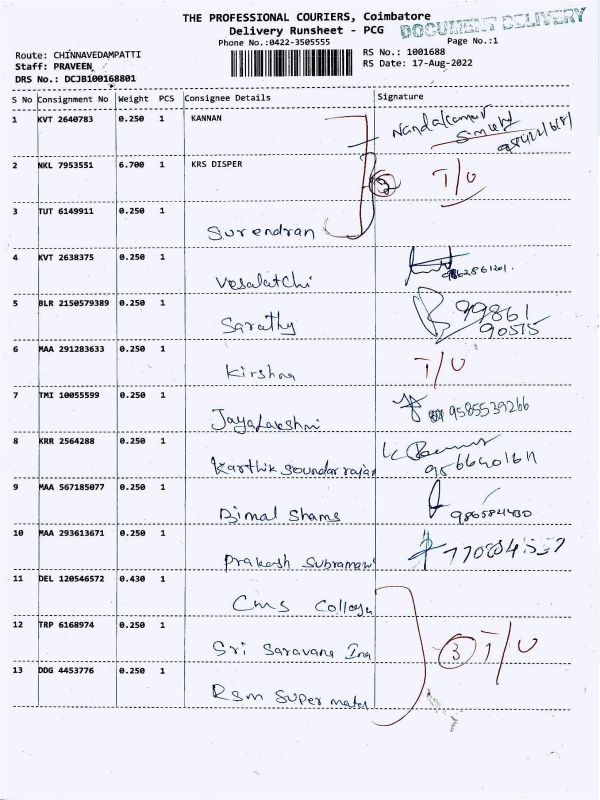 THE PROFESSIONAL COURIERS, Coimbatore
DOCUMENT DELIVERY
Delivery Runsheet - PCG
Phone No.:0422-3505555
Page No.:1
Route: CHINNAVEDAMPATTI
RS No.: 1001688
Staff: PRAVEEN
RS Date: 17-Aug-2022
DRS No.: DCJB100168801
S No Consignment No Weight PCS Consignee Details Signature
1 KVT 2640783 0.250 1 KANNAN Nandakumar
2 NKL 7953551 6.700 1 KRS DISPER T/U
3 TUT 6149911 0.250 1
Surendran
4 KVT 2638375 0.250 1
Vesalatchi 9862861201.
5 BLR 2150579389 0.250 1 99861
Sarathy 90515
6 MAA 291283633 0.250 1 T/U
Kirshna
7 TMI 10055599 0.250 1
Jayalakshmi 9585539266
8 KRR 2564288 0.250 1
Karthik Soundar rajan 9566401611
9 MAA 567185077 0.250 1
Bimal Shams
10 MAA 293613671 0.250 1
Prakash Subraman
11 DEL 120546572 0.430 1
Cms College
12 TRP 6168974 0.250 1 3 T/U
Sri Saravana Ina
13 DDG 4453776 0.250 1
Rsm Super